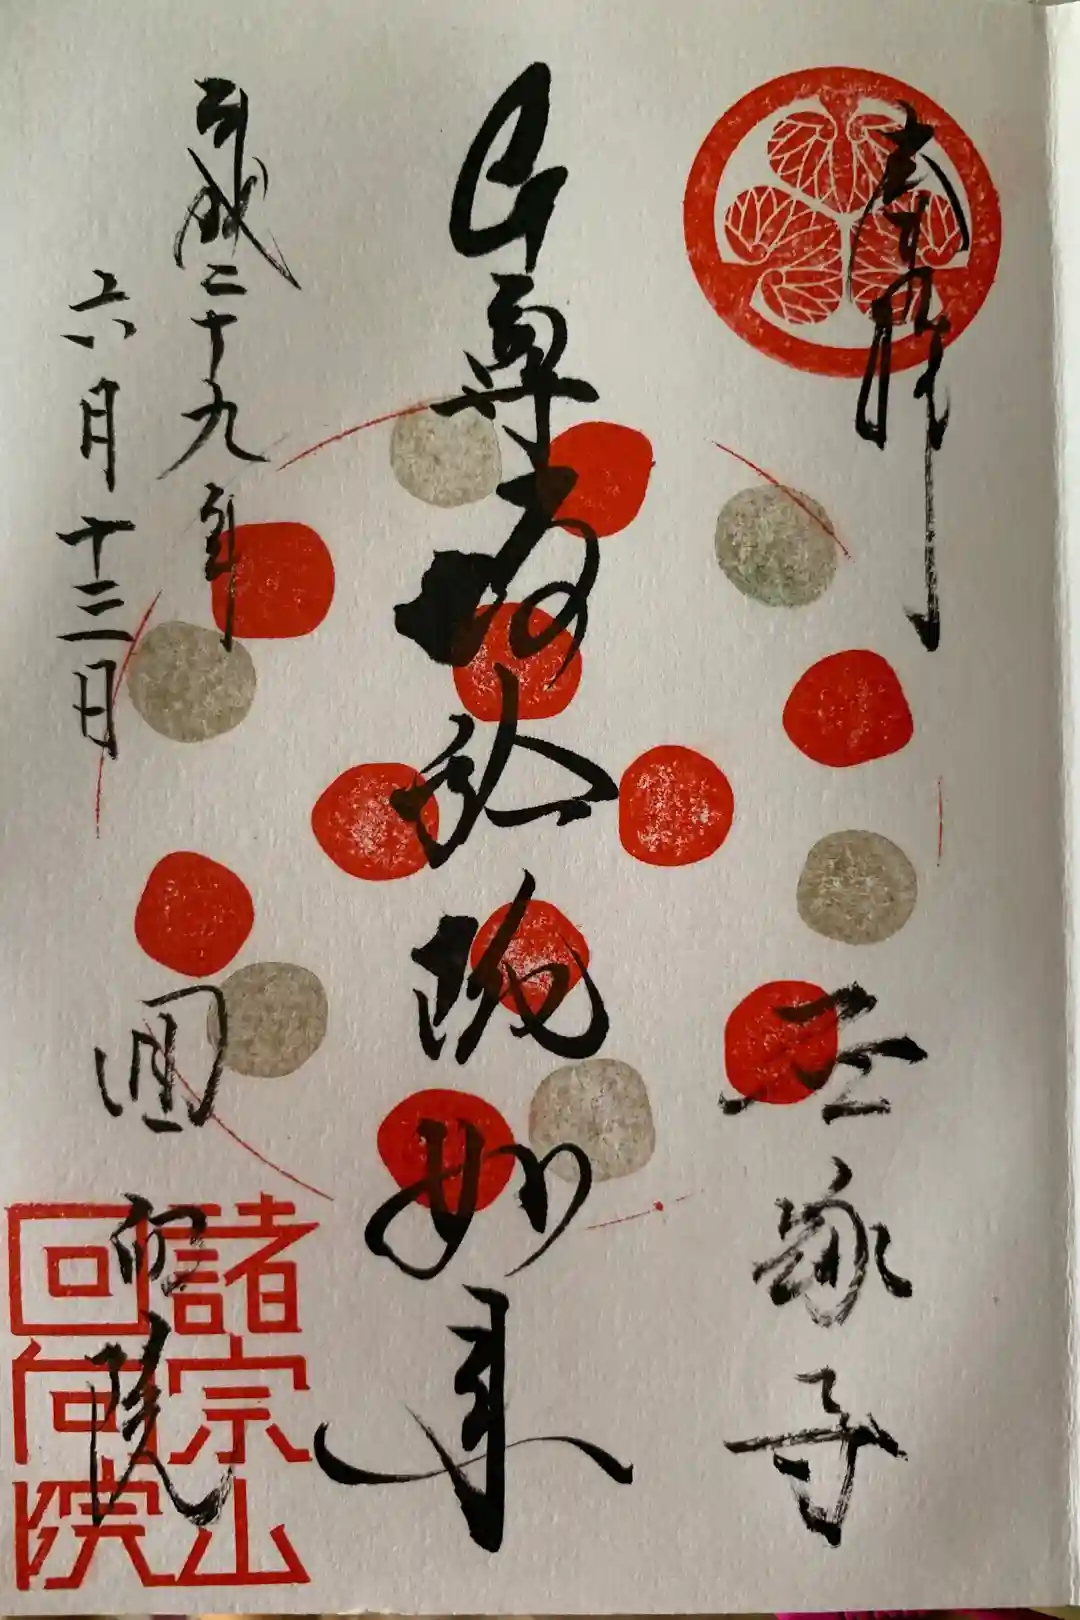 奉拝
正塚子
本尊阿弥陀如来
平成二十九年
六月十三日
回向院
諸宗山
回向院